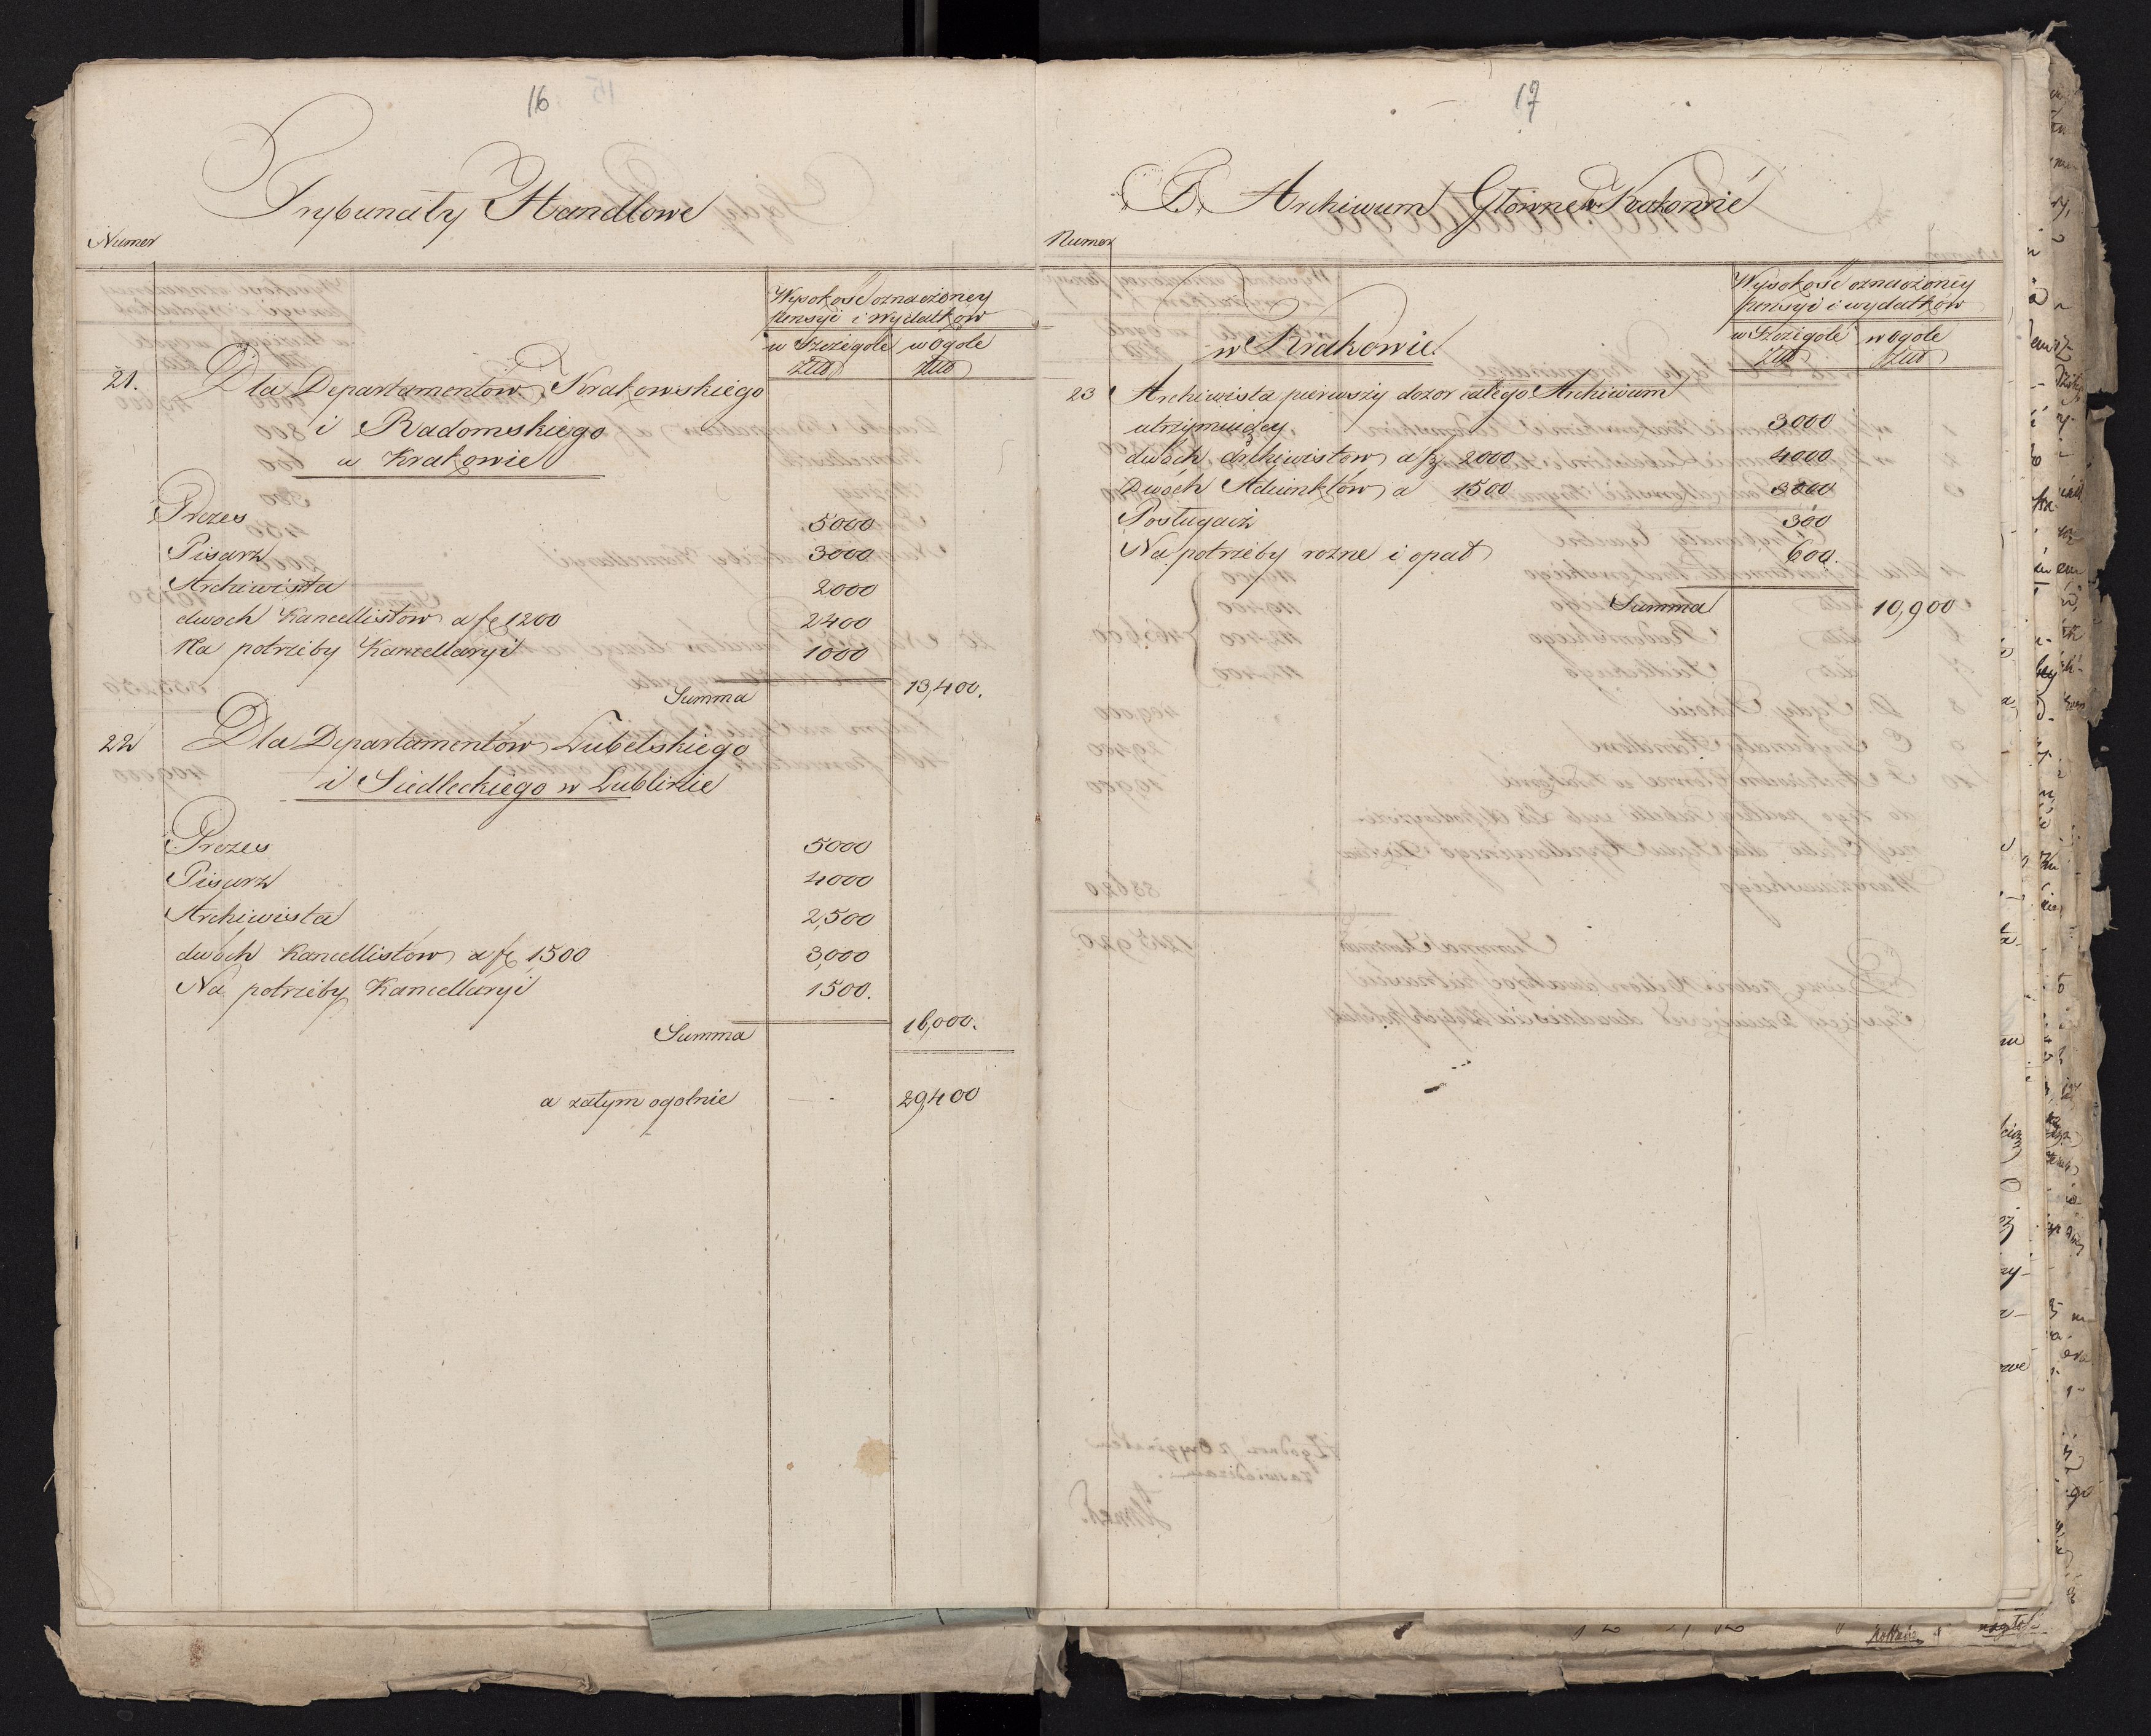 16
Trybunały Handlowe
Numer
Wysokość oznaczoney
Pensyi i wydatków
w Szczegole w Ogole
Złłł Złłł
21. Dla Departamentów Krakowskiego
i Radomskiego
w Krakowie
Prezes 5000
Pisarz 3000
Archiwista 2000
dwoch Kancellistow a f 1200 2400
Na potrzeby Kancellaryi 1000
Summa 13,400.
22 Dla Departamentów Lubelskiego
i Siedleckiego w Lublinie
Prezes 5000
Pisarz 4000
Archiwista 2,500
dwóch Kancellistow a f 1,500 3,000
Na potrzeby Kancellaryi 1500.
Summa 16,000.
a zatym ogolnie 29,400
17
Archiwum Główne w Krakowie
Numer
Wysokość oznaczoney
pensyi i wydatków
w Szczegole w ogole
Złłł Złłł
w Krakowie
23 Archiwista pierwszy dozor całego Archiwum
utrzymuiący 3000
dwóch archiwistow a f 2000 4000
Dwóch Adiunktów a 1500 3000
Posługacz 300
Na potrzeby rozne i opał 600.
Summa 10,900